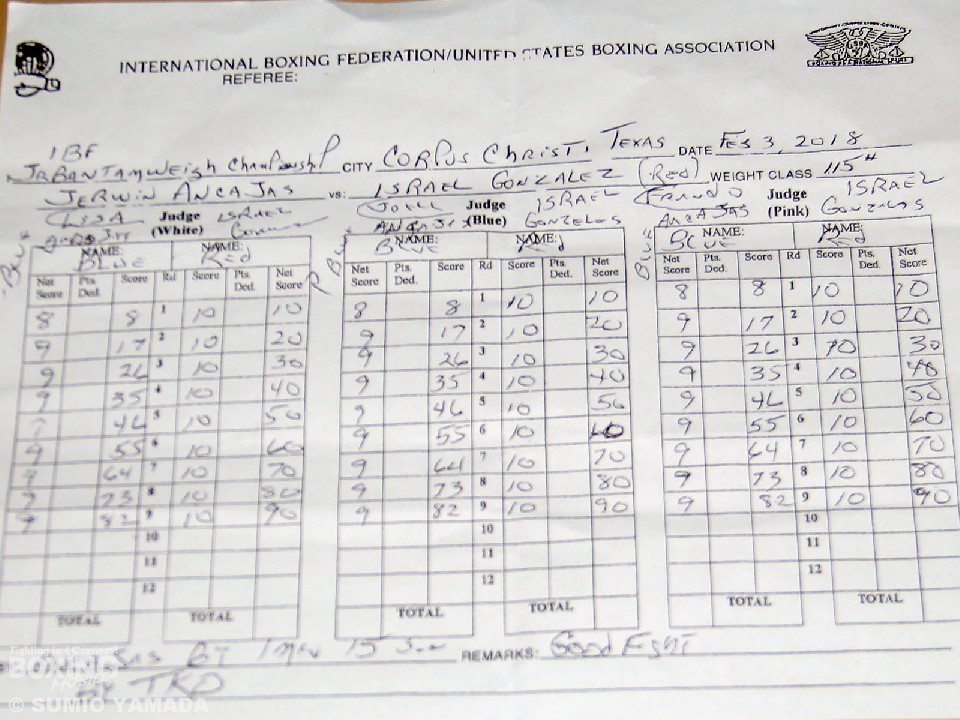 INTERNATIONAL BOXING FEDERATION/UNITED STATES BOXING ASSOCIATION
REFEREE:
IBF
JR BANTAMWEIGH CHAMPIONSHIP CITY CORPUS CHRISTI, TEXAS DATE FEB 3, 2018
JERWIN ANCAJAS vs: ISRAEL GONZALEZ (Red) WEIGHT CLASS 115#
LISA Judge ISRAEL JOEL Judge ISRAEL Judge ISRAEL
(White) (Blue) GONZELOS ANCAJAS (Pink) GONZALAS
NAME: NAME: NAME: NAME: NAME: NAME:
BLUE Red BLUE Red BLUE Red
Net Score Pts. Ded. Score Rd Score Pts. Ded. Net Score Net Score Pts. Ded. Score Rd Score Pts. Ded. Net Score Net Score Pts. Ded. Score Rd Score Pts. Ded. Net Score
8 8 1 10 10 8 8 1 10 10 8 8 1 10 10
9 17 2 10 20 9 17 2 10 20 9 17 2 10 20
9 26 3 10 30 9 26 3 10 30 9 26 3 10 30
9 35 4 10 40 9 35 4 10 40 9 35 4 10 40
9 46 5 10 50 9 46 5 10 50 9 46 5 10 50
9 55 6 10 60 9 55 6 10 60 9 55 6 10 60
9 64 7 10 70 9 64 7 10 70 9 64 7 10 70
9 73 8 10 80 9 73 8 10 80 9 73 8 10 80
9 82 9 10 90 9 82 9 10 90 9 82 9 10 90
10 10 10
11 11 11
12 12 12
TOTAL TOTAL TOTAL TOTAL TOTAL TOTAL
AT 1 min 15 Sec REMARKS: Good Fight
By TKO
BOXING
© SUMIO YAMADA